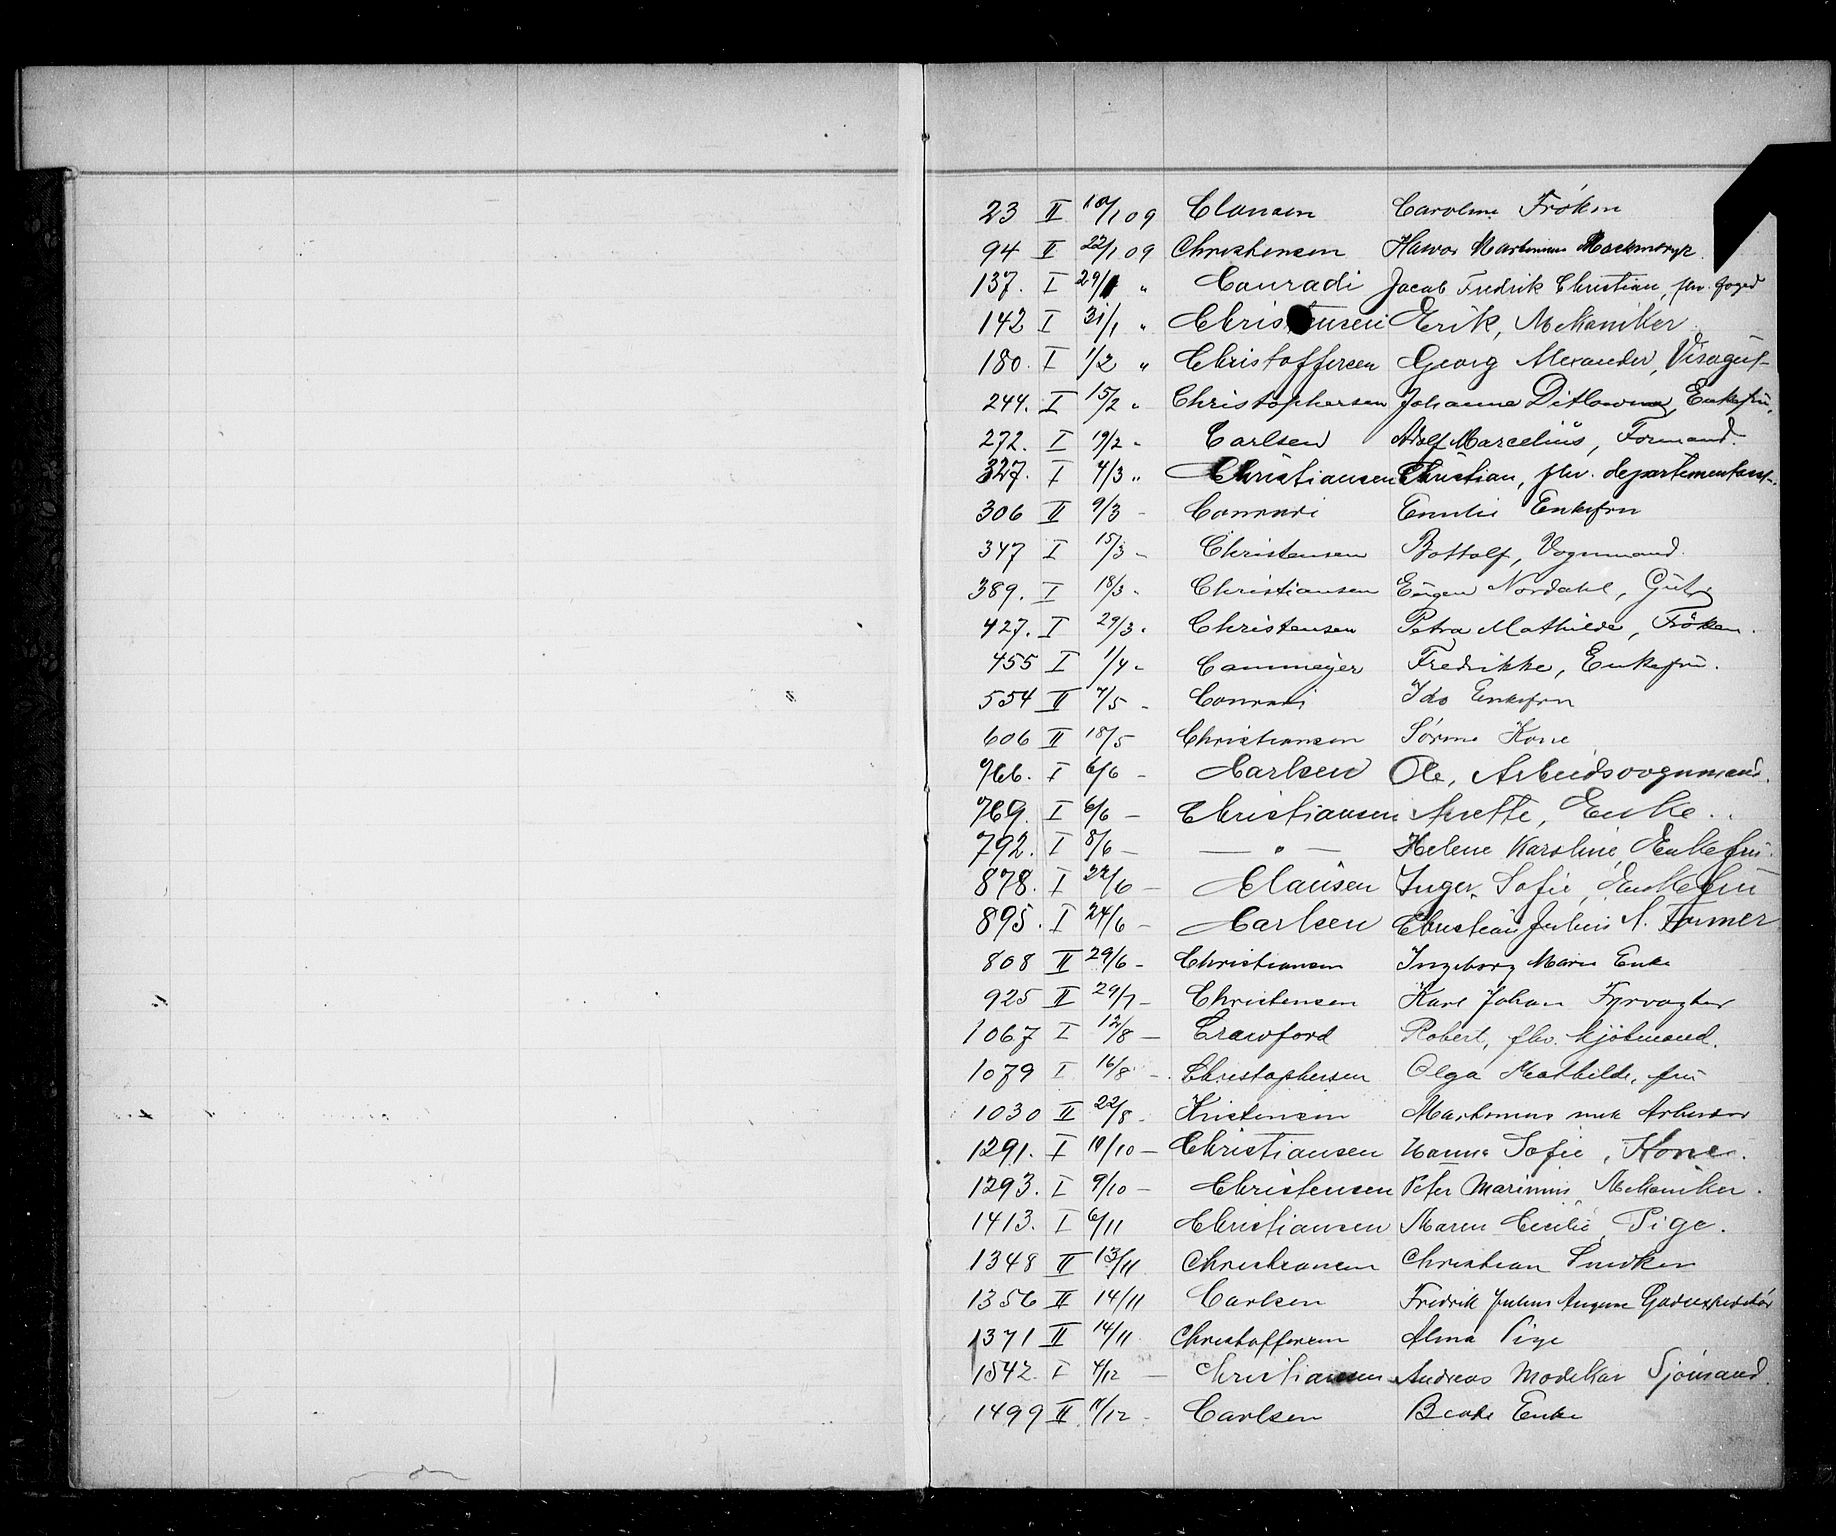 23 II 18/1 09 Clausen Caroline Frøken
94 II 22/1 09 Christensen
137. I 29/1 " Conradi Jacob Fredrik Christian, fhv. foged
142 I 31/1 " Christensen Erik, Mekaniker
180. I 1/2 " Christoffersen Georg Alexander, Visergut
244. I 15/2 " Christophersen Johanne Enkefru,
272. I 19/2 - Carlsen Adolf Marcelius, Formand.
327. I 4/3 " Christiansen Christian, fhv.
306 II 9/3 - Conradi Emilie Enkefru
347 I 15/3 - Christensen Bottolf, Vognmand.
389. I 18/3 - Christiansen Eugen Nordahl, Gut
427. I 29/3 - Christensen Petra Mathilde, Frøken.
455 I 1/4 - Cammeyer Fredrikke, Enkefru.
554 II 7/5 - Conradi Ida Enkefru
606 II 18/5 Christiansen Kone
766. I 6/6 - Carlsen Ole, Arbeidsvognmand.
769. I 6/6 - Christiansen Anette, Enke.
792. I 8/6 - — " — Helene Karoline, Enkefru.
878. I 22/6 - Clausen Inger Sofie, Enkefru
895. I 24/6 - Carlsen Christian Julius A. Former
808 II 29/6 - Christiansen Ingeborg Marie Enke
925 II 29/7 - Christensen Karl Johan Fyrvogter
1067 I 12/8 - Crawford Robert, fhv. kjøbmand.
1079 I 16/8 - Christophersen Olga Mathilde, fru
1030 II 22/8 - Kristensen
1291. I 10/10 - Christiansen Hanna Sofie, Kone.
1293. I 9/10 - Christensen Peter Marinius, Mekaniker.
1413. I 6/11 Christiansen Maren Cecilie Pige.
1348 II 13/11 Christiansen Christian Snedker
1356 II 14/11 Carlsen Fredrik Julius
1371 II 14/11 Christoffersen Alma Pige
1542. I 4/12 - Christiansen Andreas Sjømand.
1499 II 11/12 - Carlsen Enke